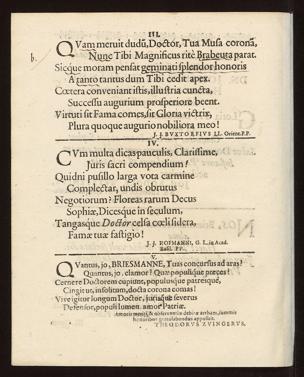 III.
b.
QVam meruit dudũ, Doctor, Tua Musa coronã,
Nunc Tibi Magnificus ritè Brabeuta parat.
Sicque moram pensat geminati splendor honoris
A tanto tantus dum Tibi cedit apex.
Cœtera conveniant istis, illustria cuncta,
Successu augurium prosperiore beent.
Virtuti sit Fama comes, sit Gloria victrix,
Plura quoque augurio nobiliora meo!
J. J. BVXTORFIVS LL. Orient. P.P.
IV.
CVm multa dicas paucula, Clarissime,
Juris sacri compendium!
Quidni pusillo larga vota carmine
Complectar, undis obrutus
Negotiorum? Floreas rarum Decus
Sophiæ, Dicesque in seculum,
Tangasque Doctor celsa cœli sidera,
Famæ tuæ fastigio!
J. J. HOFMANNI, G. L. in Acad.
Basil. PP.
V.
QVantus, jo, BRIESMANNE, Tuas concursus ad aras?
Quantus, jo, clamor? Quæ populique preces?
Cernere Doctorem cupiunt, populusque patresque,
Cingitur, insolitum, docta corona comas!
Vive igitur longum Doctor, jurisque severus
Defensor, populi lumen, amor Patriæ.
THEODORUS ZVINGERUS.